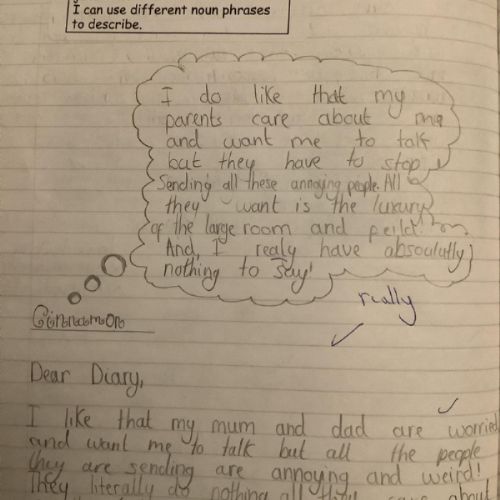 I can use different noun phrases
to describe.
I do like that my
parents care about me
and want me to talk
but they have to stop
Sending all these annoying people. All
they want is the luxury
of the large room and
And, I realy have absoulatly
nothing to say!
really
Cinnamon
Dear Diary,
I like that my mum and dad are worried
and want me to talk but all the people
they are sending are annoying and weird!
They literally do nothing all